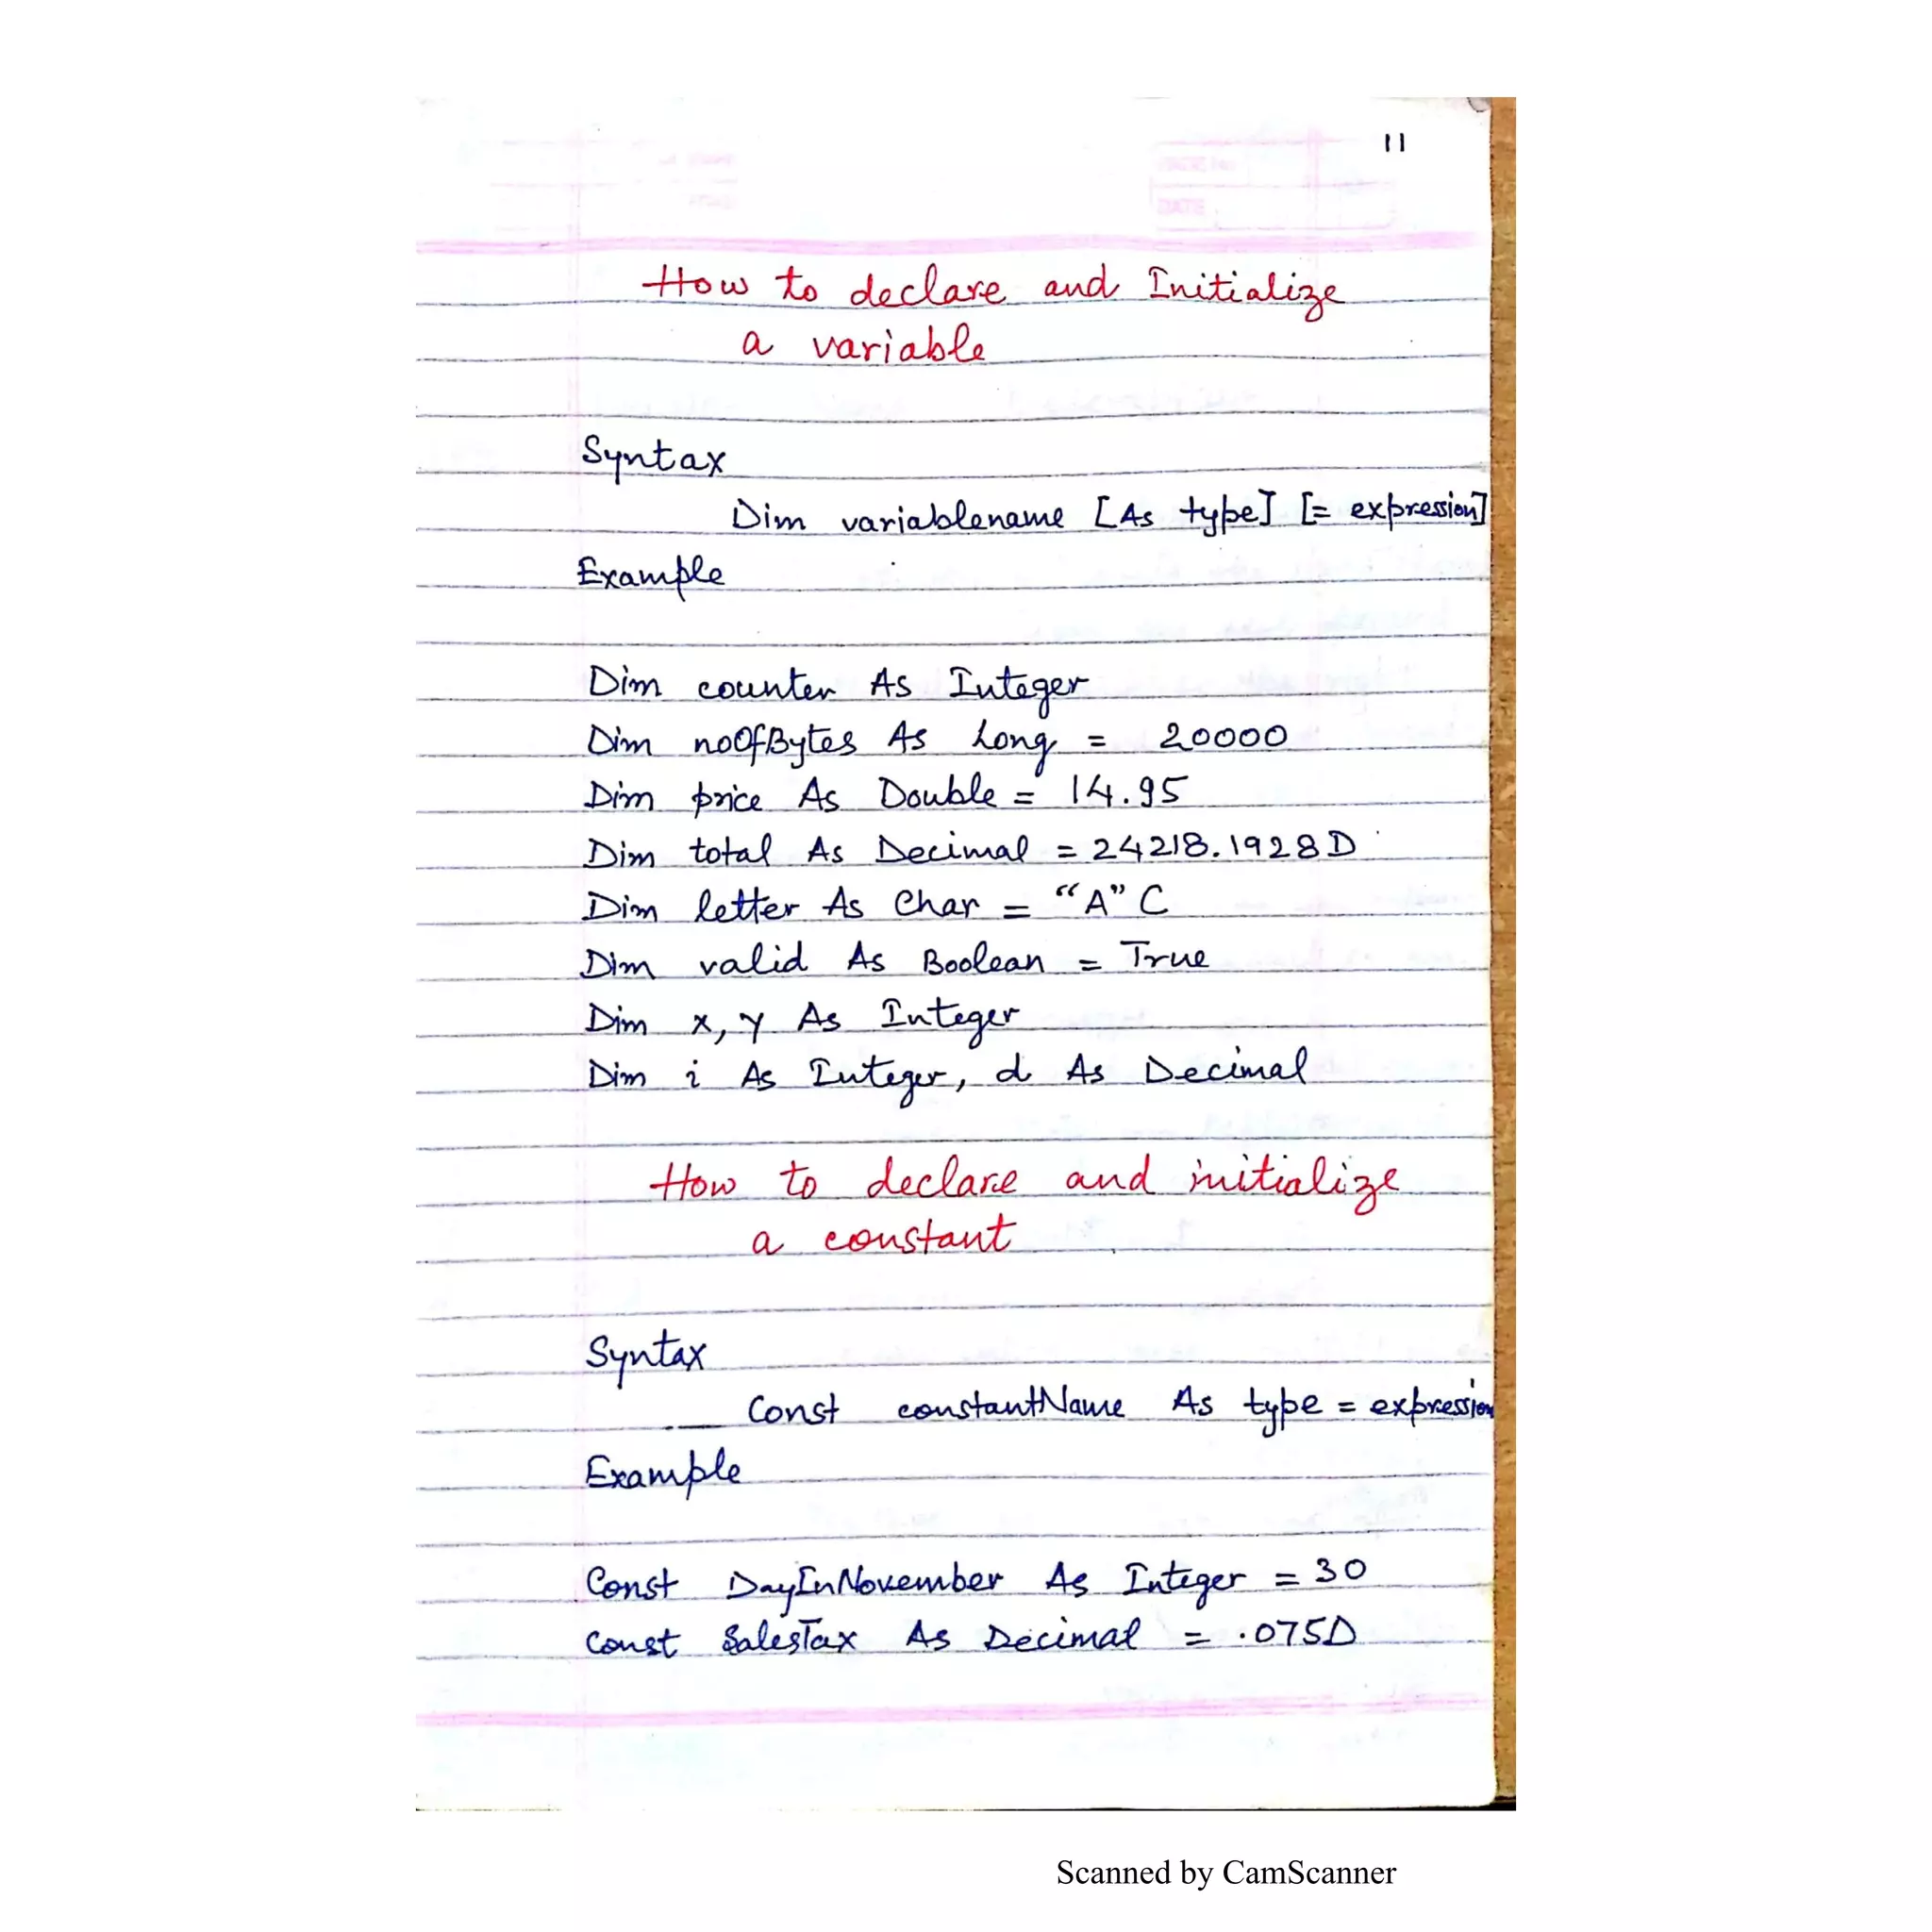 11
How to declare and Initialize
a variable
Syntax
Dim variablename [As type] [= expression]
Example
Dim counter As Integer
Dim noOfBytes As Long = 20000
Dim price As Double = 14.95
Dim total As Decimal = 24218.1928D
Dim letter As Char = “A” C
Dim valid As Boolean = True
Dim x, y As Integer
Dim i As Integer, d As Decimal
How to declare and initialize
a constant
Syntax
Const constantName As type = expression
Example
Const DayInNovember As Integer = 30
Const SalesTax As Decimal = .075D
Scanned by CamScanner